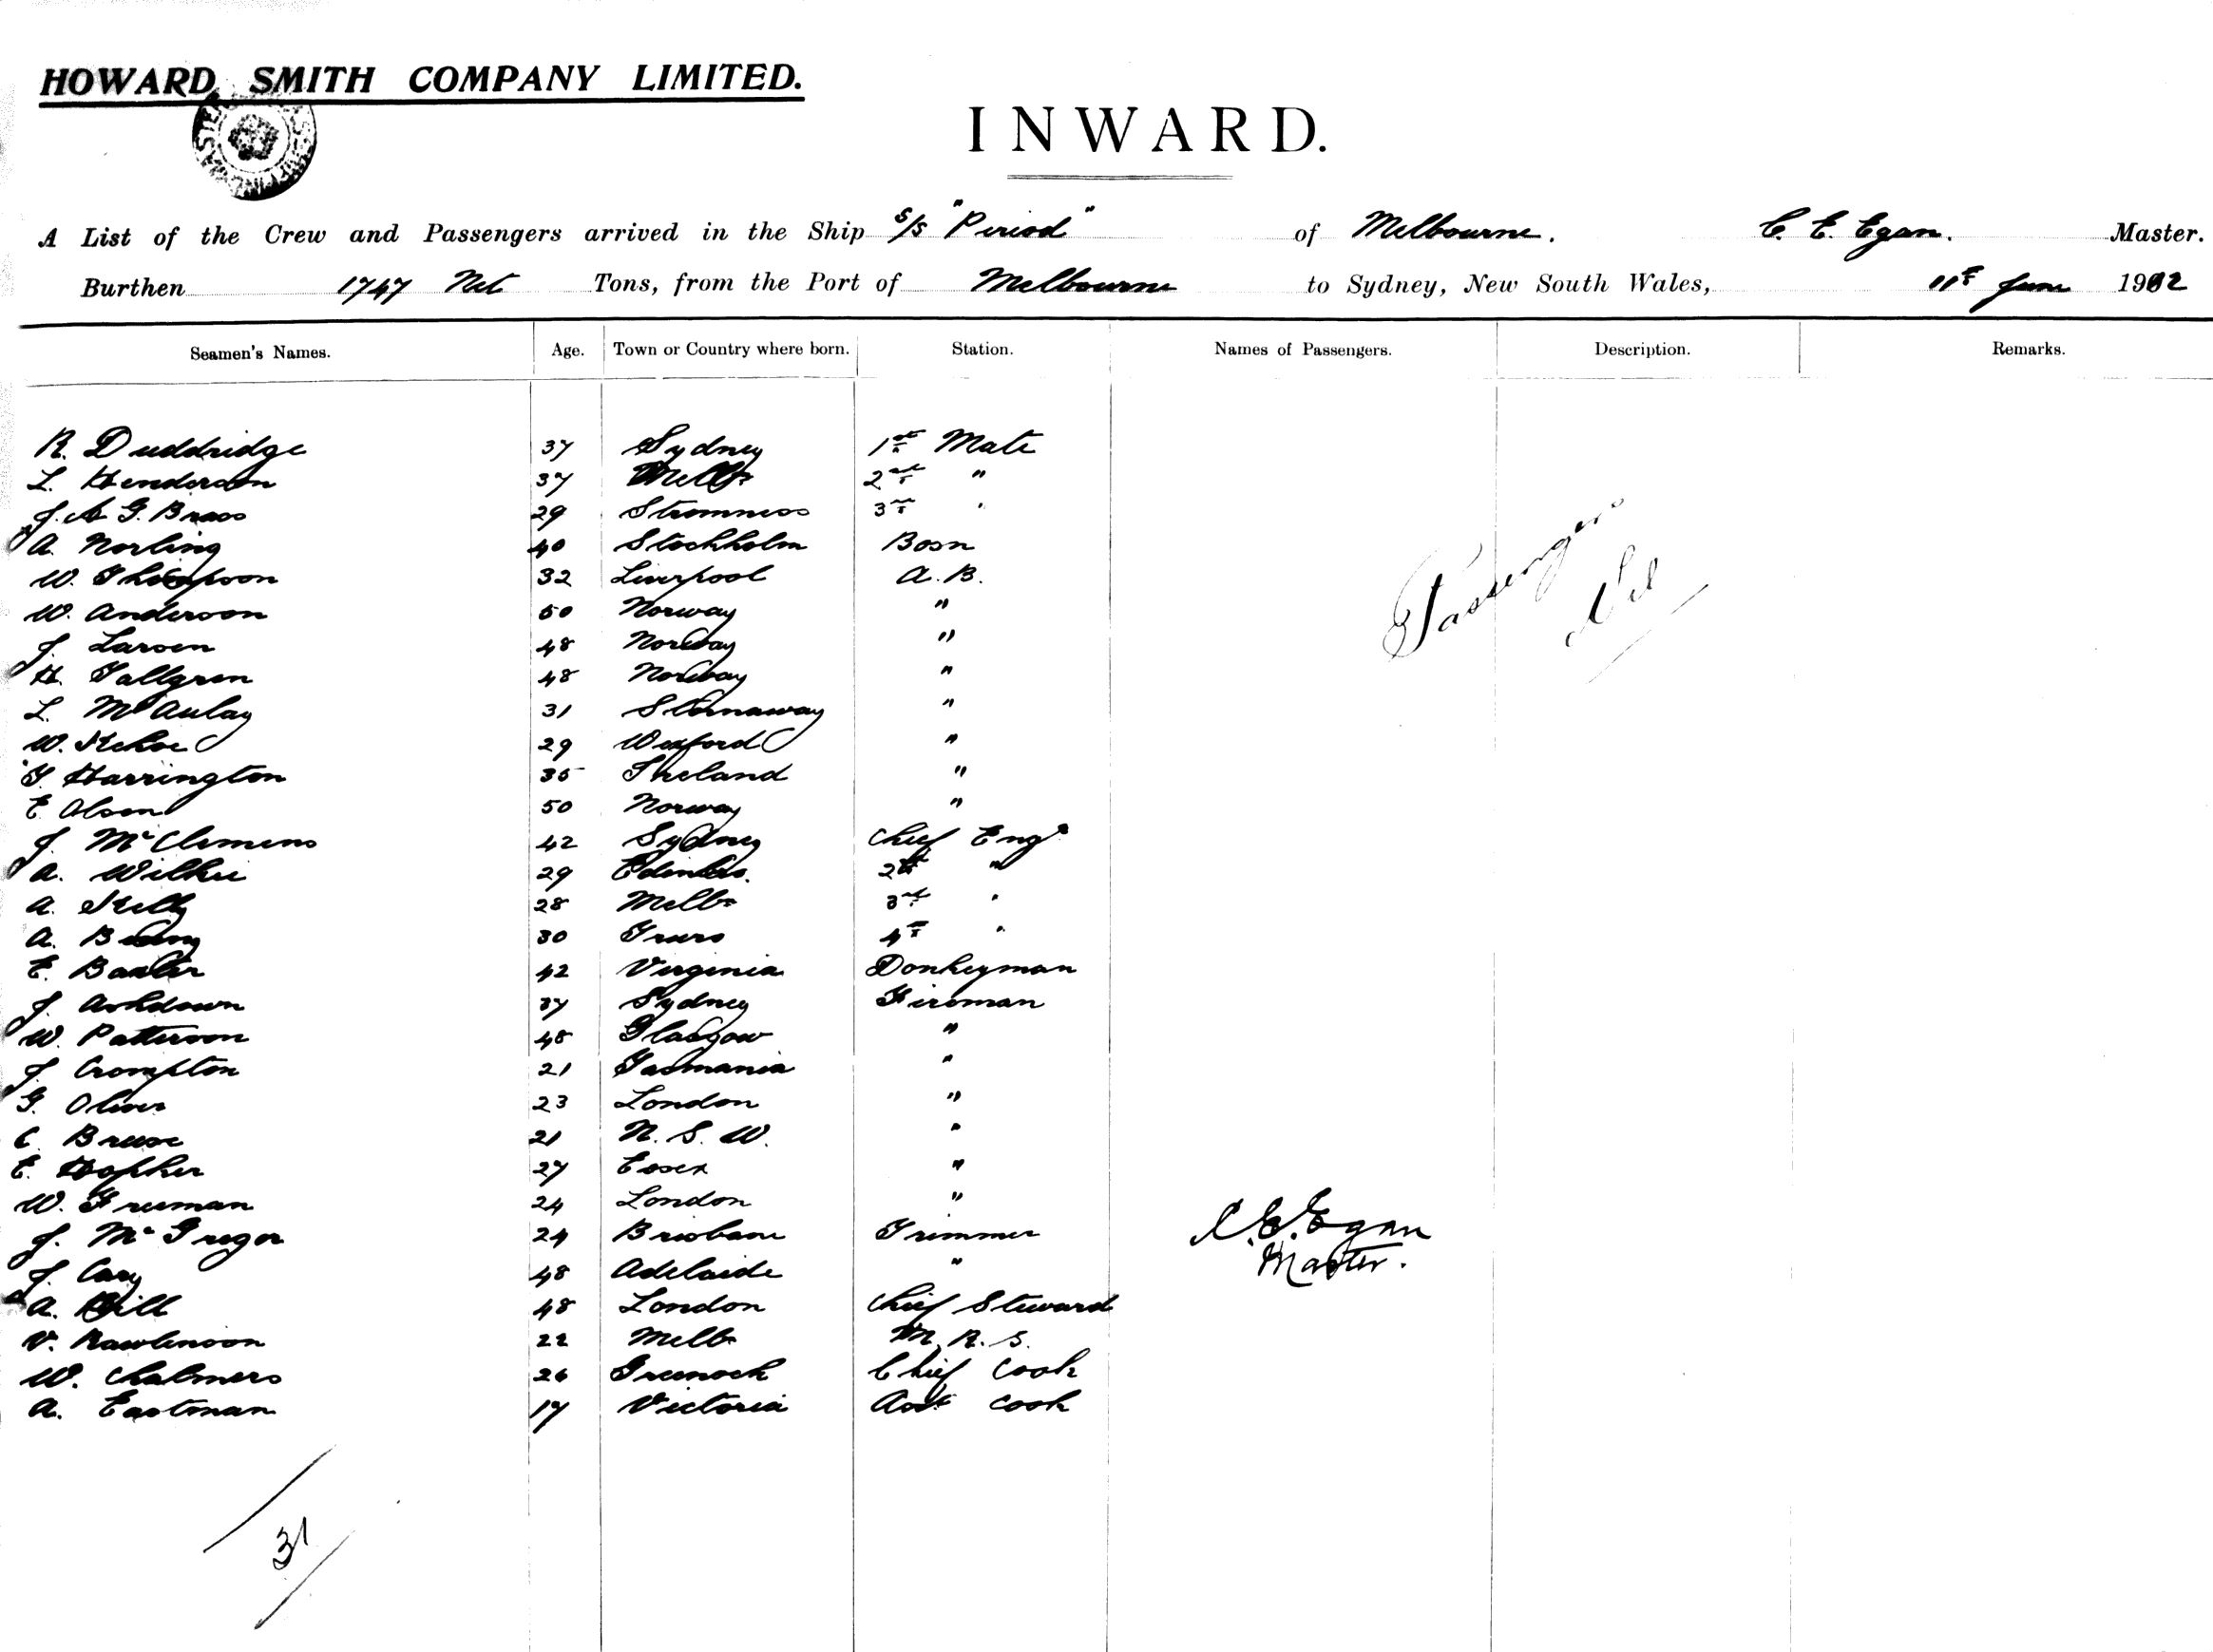 HOWARD SMITH COMPANY LIMITED.
INWARD.
A List of the Crew and Passengers arrived in the Ship S/S "Period" of Melbourne. C. E. Egan. Master.
Burthen 1747 Net Tons, from the Port of Melbourne to Sydney, New South Wales, 11th June 1912
Seamen's Names. Age. Town or Country where born. Station. Names of Passengers. Description. Remarks.
R. Duddridge 37 Sydney 1st Mate
L. Henderson 37 Melb 2nd "
J. A. G. Brass 29 Stromness 3rd "
A. Norling 40 Stockholm Bosn
W. Thompson 32 Liverpool A.B.
W. Anderson 50 Norway "
J. Larsen 48 Norway "
H. Tallgren 48 Norway "
L. McAulay 31 Stornaway "
W. Kehoe 29 Wexford "
T. Harrington 35 Ireland "
E. Olsen 50 Norway "
J. McClemens 42 Sydney Chief Engr
A. Wilkie 29 Edinbro. 2nd "
A. Kelly 28 Melb 3rd "
A. 30 Truro 4th "
E. Baxter 42 Virginia Donkeyman
J. Ashdown 37 Sydney Fireman
W. Patterson 48 Glasgow "
J. Crompton 21 Tasmania "
G. Oliver 23 London "
C. 21 N. S. W. "
E. Hopher 27 Essex "
W. Freeman 24 London "
J. McGregor 24 Brisbane Trimmer
J. Cary 48 Adelaide "
A. 48 London Chief Steward
V. Rawlinson 22 Melb M. R. S.
W. Chalmers 26 Greenock Chief Cook
A. Eastman 17 Victoria Asst Cook
Passengers
Nil
C. E. Egan
Master.
31